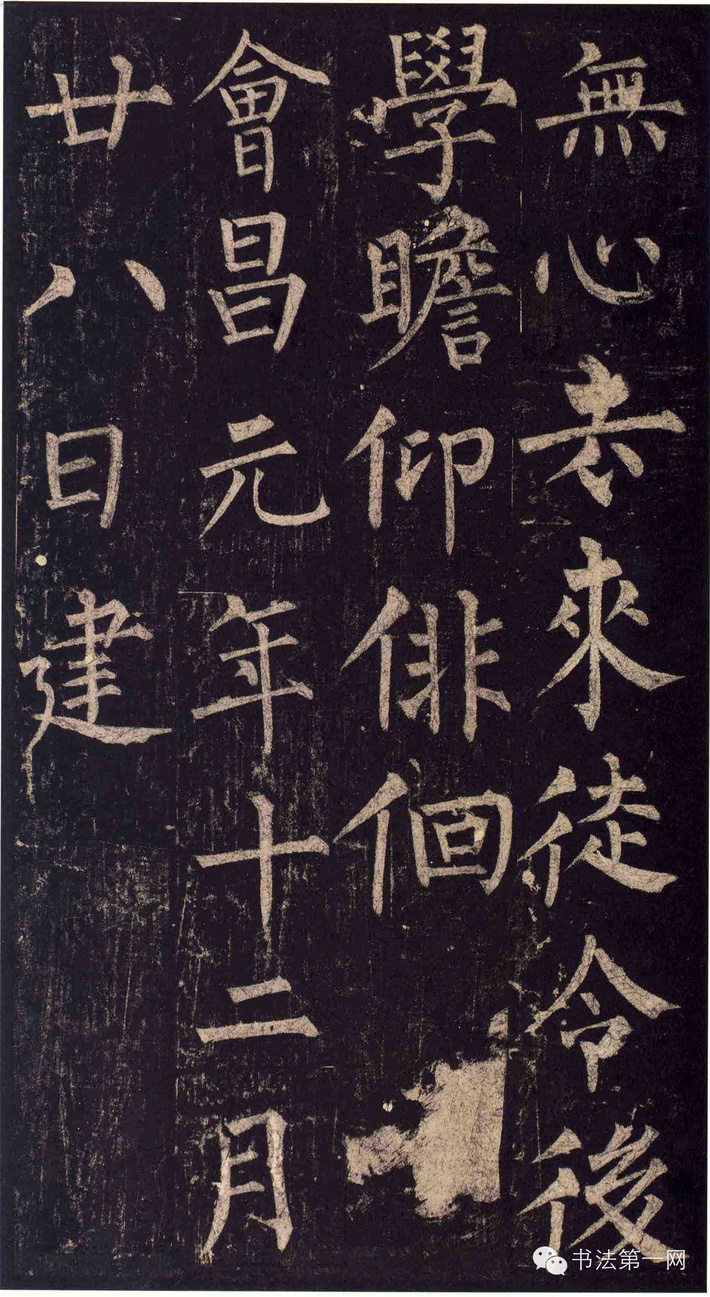 無心去來徒令後
學瞻仰俳佪
會昌元年十二月
廿八日建
书法第一网